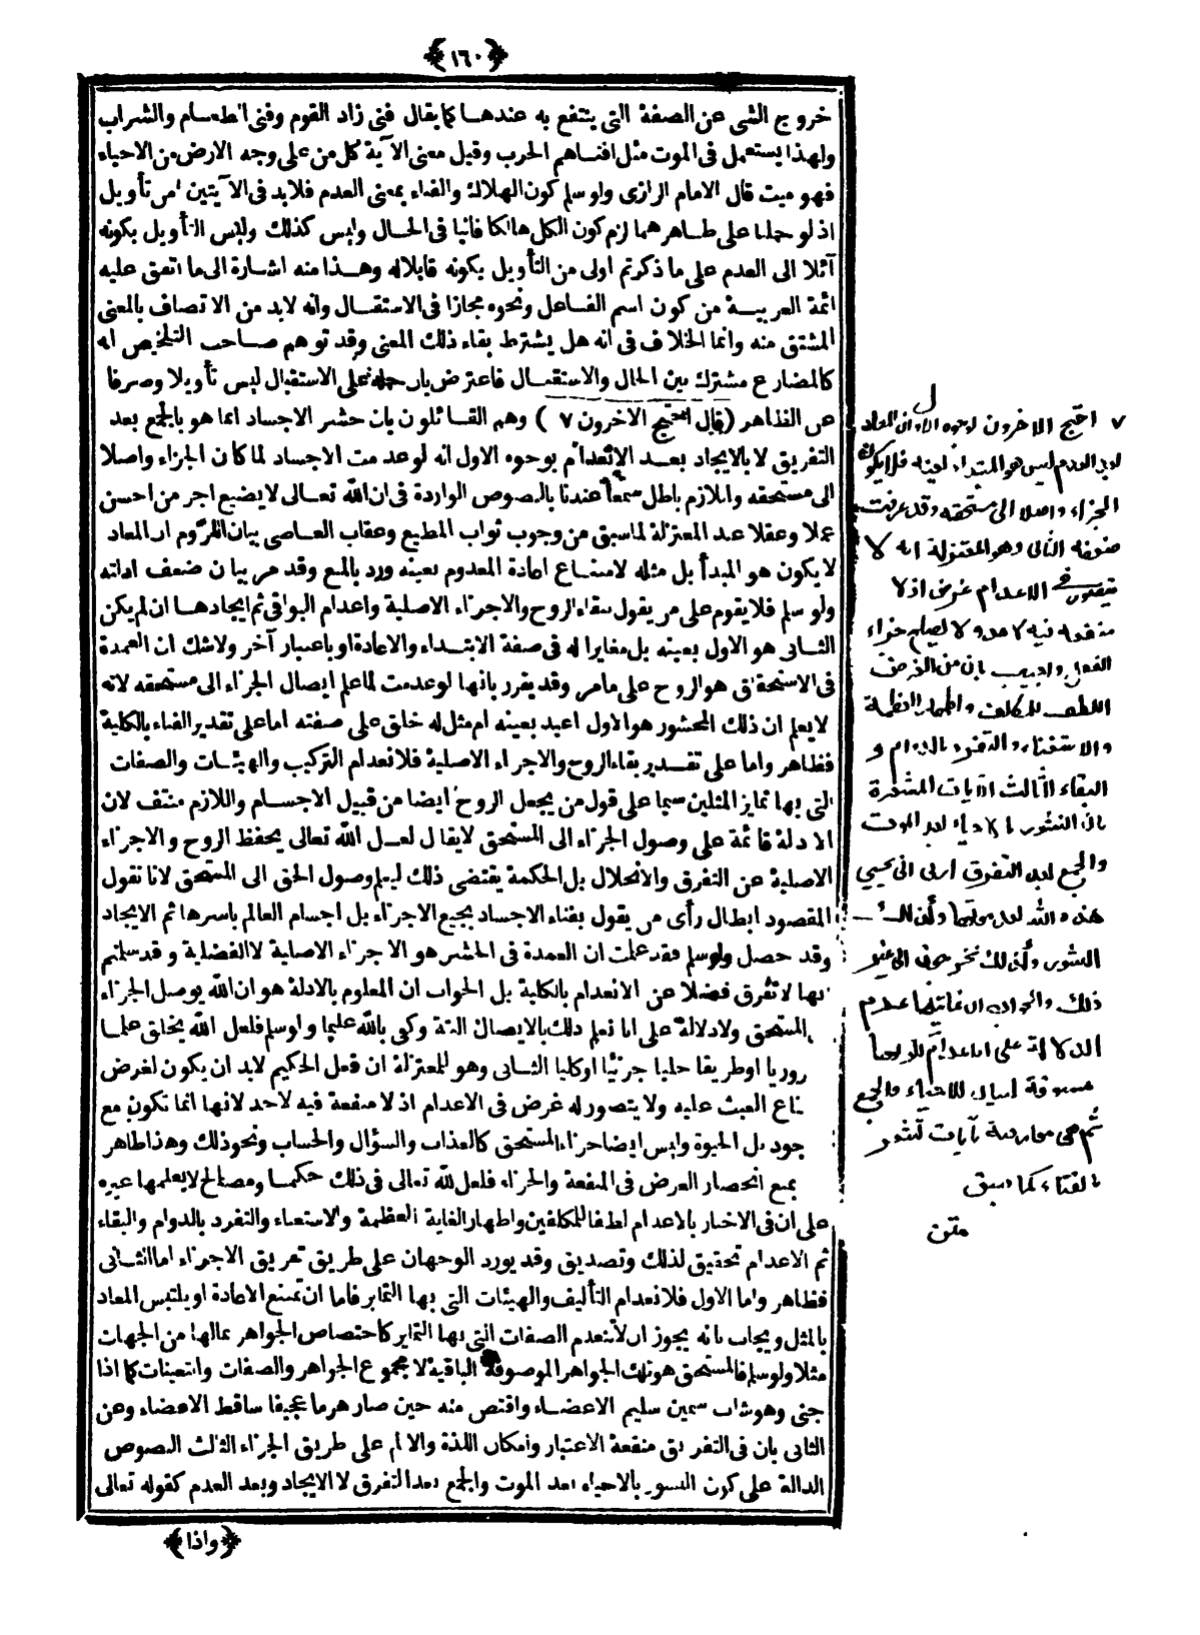 ﴿١٦٠﴾
خروج الشى عن الصفة التى ينتفع به عندها كما يقال فنى زاد القوم وفنى الطعام والشراب
ولهذا يستعمل فى الموت مثل افناهم الحرب وقيل معنى الآية كل من على وجه الارض من الاحياء
فهو ميت قال الامام الرازى ولو سلم كون الهلاك والفناء بمعنى العدم فلابد فى الآيتين من تأويل
اذ لو حملنا على ظاهرهما لزم كون الكل هالكا فانيا فى الحال وليس كذلك وليس التأويل بكونه
آئلا الى العدم على ما ذكرتم اولى من التأويل بكونه قابلا له وهذا منه اشارة الى ما اتفق عليه
ائمة العربية من كون اسم الفاعل ونحوه مجازا فى الاستقبال وانه لابد من الاتصاف بالمعنى
المشتق منه وانما الخلاف فى انه هل يشترط بقاء ذلك المعنى وقد توهم صاحب التلخيص انه
كالمضارع مشترك بين الحال والاستقبال فاعترض بان حمله على الاستقبال ليس تأويلا وصرفا
عن الظاهر (قال احتج الاخرون ٧) وهم القائلون بان حشر الاجساد انما هو بالجمع بعد
التفريق لا بالايجاد بعد الانعدام بوجوه الاول انه لو عدمت الاجساد لما كان الجزاء واصلا
الى مستحقه واللازم باطل سمعا عندنا بالنصوص الواردة فى ان الله تعالى لا يضيع اجر من احسن
عملا وعقلا عند المعتزلة لما سبق من وجوب ثواب المطيع وعقاب العاصى بيان اللزوم ان المعاد
لا يكون هو المبدأ بل مثله لامتناع اعادة المعدوم بعينه ورد بالمنع وقد مر بيان ضعف ادلته
ولو سلم فلا يقوم على من يقول ببقاء الروح والاجزاء الاصلية واعدام البواقى ثم ايجادها ان لم يكن
الثانى هو الاول بعينه بل مغايرا له فى صفة الابتداء والاعادة او باعتبار آخر ولا شك ان العمدة
فى الاستحقاق هو الروح على ما مر وقد يقرر بانها لو عدمت لما علم ايصال الجزاء الى مستحقه لانه
لا يعلم ان ذلك المحشور هو الاول اعيد بعينه ام مثل له خلق على صفته اما على تقدير الفناء بالكلية
فظاهر واما على تقدير بقاء الروح والاجزاء الاصلية فلانعدام التركيب والهيئات والصفات
التى بها تمايز المثلين سيما على قول من يجعل الروح ايضا من قبيل الاجسام واللازم منتف لان
الادلة قائمة على وصول الجزاء الى المستحق لا يقال لعل الله تعالى يحفظ الروح والاجزاء
الاصلية عن التفرق والانحلال بل الحكمة يقتضى ذلك ليعلم وصول الحق الى المستحق لانا نقول
المقصود ابطال رأى من يقول بفناء الاجساد بجميع الاجزاء بل اجسام العالم باسرها ثم الايجاد
وقد حصل ولو سلم فقد علمت ان العمدة فى الحشر هو الاجزاء الاصلية لا الفضلية وقد سلمتم
انها لا تفرق فضلا عن الانعدام بالكلية بل الجواب ان المعلوم بالادلة هو ان الله يوصل الجزاء
المستحق ولا دلالة على انا نعلم ذلك بالايصال البتة وكفى بالله عليما ولو سلم فلعل الله يخلق علما
روريا او طريقا جليا جزئيا او كليا الثانى وهو للمعتزلة ان فعل الحكيم لابد ان يكون لغرض
ناع العبث عليه ولا يتصور له غرض فى الاعدام اذ لا منفعة فيه لاحد لانها انما تكون مع
جود بل الحيوة وليس ايضا جزاء المستحق كالعذاب والسؤال والحساب ونحو ذلك وهذا ظاهر
بمنع انحصار الغرض فى المنفعة والجزاء فلعل لله تعالى فى ذلك حكما ومصالح لا يعلمها غيره
على ان فى الاخبار بالاعدام لطفا للمكلفين واظهار الغاية العظمة والاستغناء والتفرد بالدوام والبقاء
ثم الاعدام تحقيق لذلك وتصديق وقد يورد الوجهان على طريق تفريق الاجزاء اما الثانى
فظاهر واما الاول فلانعدام التأليف والهيئات التى بها التمايز فاما ان تمتنع الاعادة او يلتبس المعاد
بالمثل ويجاب بانه يجوز ان لا تنعدم الصفات التى بها التمايز كاختصاص الجواهر بمالها من الجهات
مثلا ولو سلم فالمستحق هو تلك الجواهر الموصوفة الباقية لا مجموع الجواهر والصفات والتعينات كما اذا
جنى وهو شاب سمين سليم الاعضاء واقتص منه حين صار هرما عجيفا ساقط الاعضاء وعن
الثانى بان فى التفريق منفعة الاعتبار وامكان اللذة والالم على طريق الجزاء الثالث النصوص
الدالة على كون النشور بالاحياء بعد الموت والجمع بعد التفرق لا الايجاد وبعد العدم كقوله تعالى
﴿واذا﴾
٧ احتج الاخرون بوجوه الاول ان المعاد
بعد العدم ليس هو المبتدأ بعينه فلا يكون
الجزاء واصلا الى مستحقه وقد عرفت
ضعفه الثانى وهو للمعتزلة انه لا
يتصور فى الاعدام غرض اذ لا
منفعة فيه لاحد ولا يصلح جزاء
الفعل واجيب بان من الغرض
اللطف للمكلف واظهار العظمة
والاستغناء والتفرد بالدوام و
البقاء الثالث الآيات المشعرة
بان النشور بالاحياء بعد الموت
والجمع بعد التفرق ارنى انى يحيى
هذه الله بعد موتها وكذلك
النشور وكذلك تخرجون الى غير
ذلك والجواب ان غايتها عدم
الدلالة على الاعدام
مسوقة لبيان الاحياء والجمع
ثم هى معارضة بآيات تشعر
بالفناء كما سبق
متن